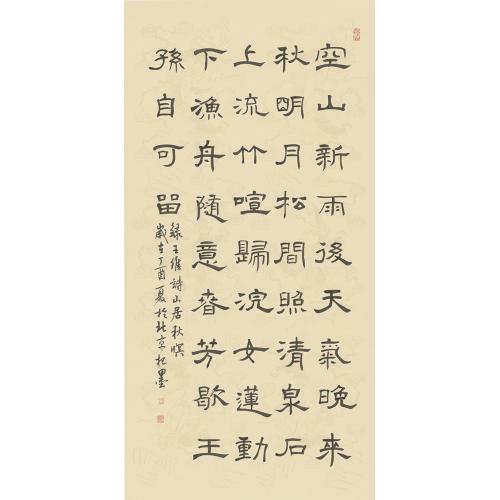 空山新雨後天氣晚来
秋明月松間照清泉石
上流竹喧歸浣女蓮動
下漁舟隨意春芳歇王
孫自可留
録王維詩山居秋暝
歲在丁酉夏於北京